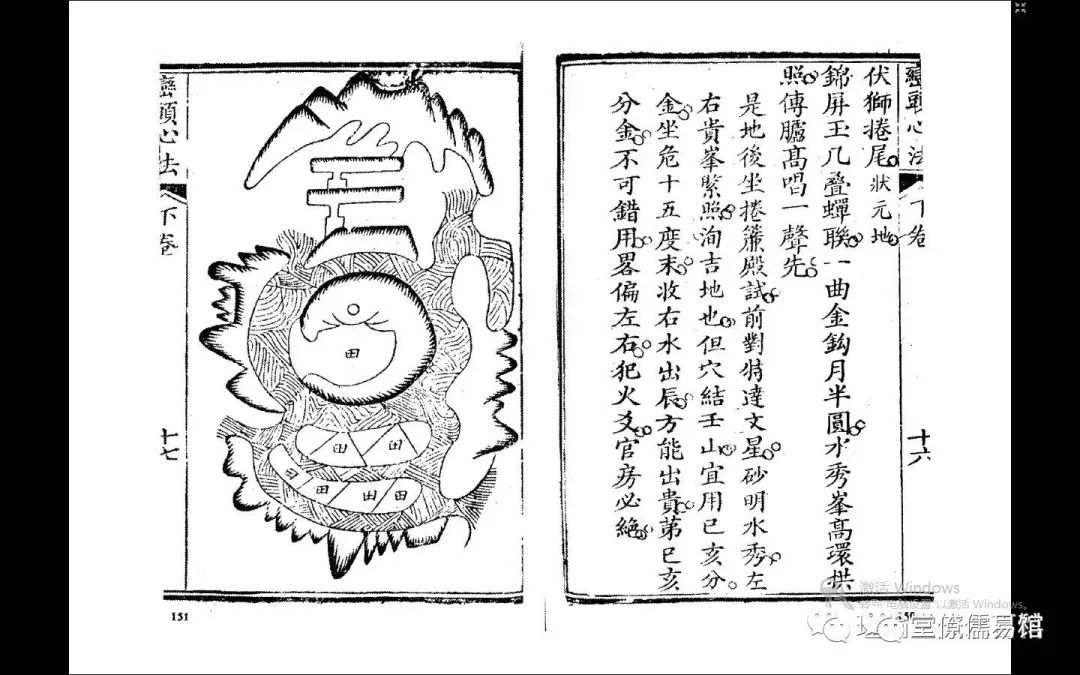 巒頭心法 下卷 十六
伏獅捲尾 狀元地
錦屏玉几疊蟬聯一曲金鈎月半圓水秀峯高環拱
照傳臚高唱一聲先
是地後坐捲簾殿試前對特達文星砂明水秀左
右貴峯緊照洵吉地也但穴結壬山宜用已亥分
金坐危十五度末收右水出辰方能出貴苐已亥
分金不可錯用畧偏左右犯火爻官房必絕
田
田 田
田 田 田 田
巒頭心法 下卷 十七
151
激活 Windows
转到"电脑设置"以激活 Windows。
堂僚儒易馆